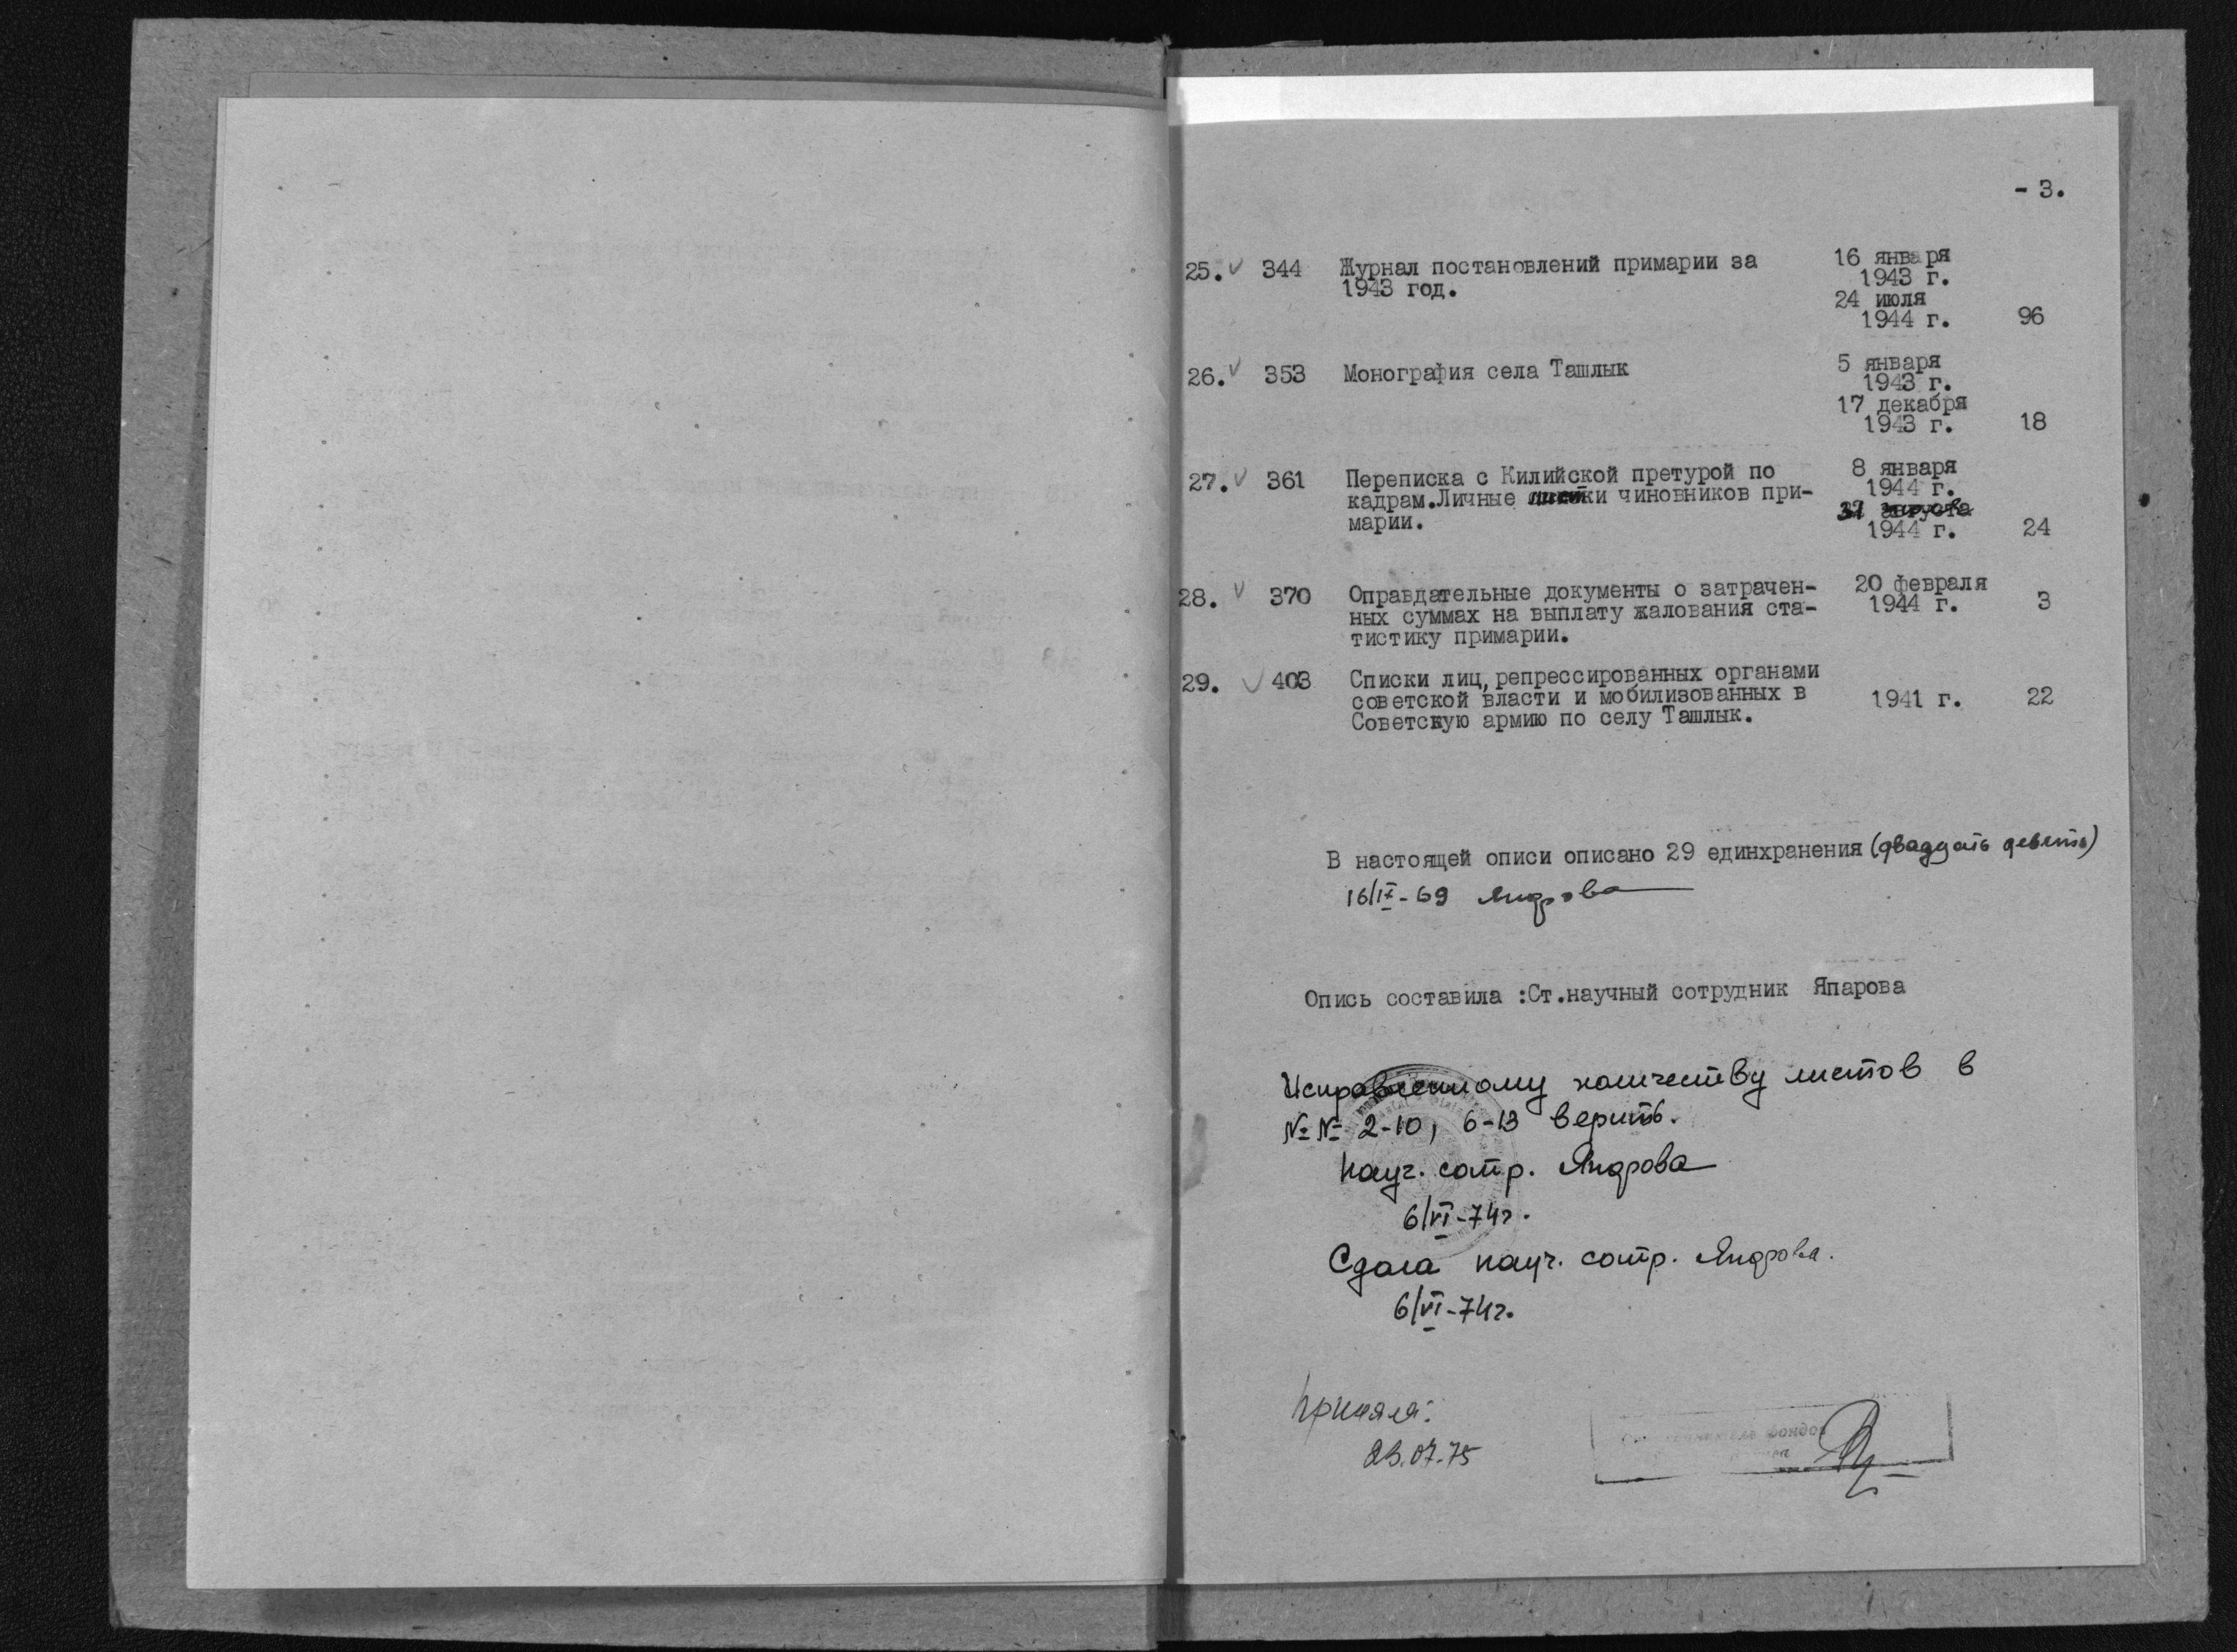 - 3.
25. 344 Журнал постановлений примарии за 16 января
1943 год. 1943 г.
24 июля
1944 г. 96
26. 353 Монография села Ташлык 5 января
1943 г.
17 декабря
1943 г. 18
27. 361 Переписка с Килийской претурой по 8 января
кадрам.Личные листки чиновников при- 1944 г.
марии. 31
1944 г. 24
28. 370 Оправдательные документы о затрачен- 20 февраля
ных суммах на выплату жалования ста- 1944 г. 3
тистику примарии.
29. 403 Списки лиц,репрессированных органами
советской власти и мобилизованных в 1941 г. 22
Советскую армию по селу Ташлык.
В настоящей описи описано 29 единхранения (двадцать девять)
16/IX-69
Опись составила :Ст.научный сотрудник Япарова
Исправленному количеству листов в
№№ 2-10, 6-13 верить.
Науч. сотр.
6/VI-74г.
Сдала науч. сотр.
6/VI-74г.
Приняла:
23.07.75
фондов